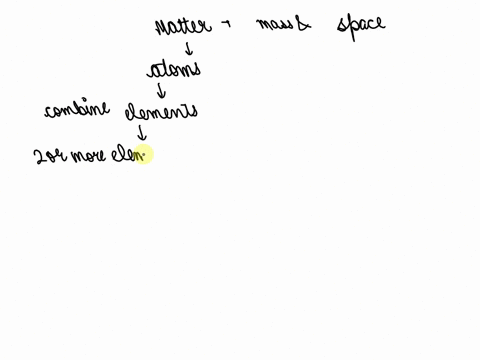 Matter → mass & space
↓
atoms
↓
combine elements
↓
2 or more elem